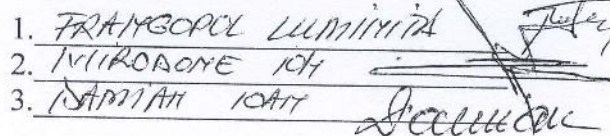 1. FRANGOPOL LUMINITA
2. MIRODONE ION
3. DAMIAN IOAN Damian